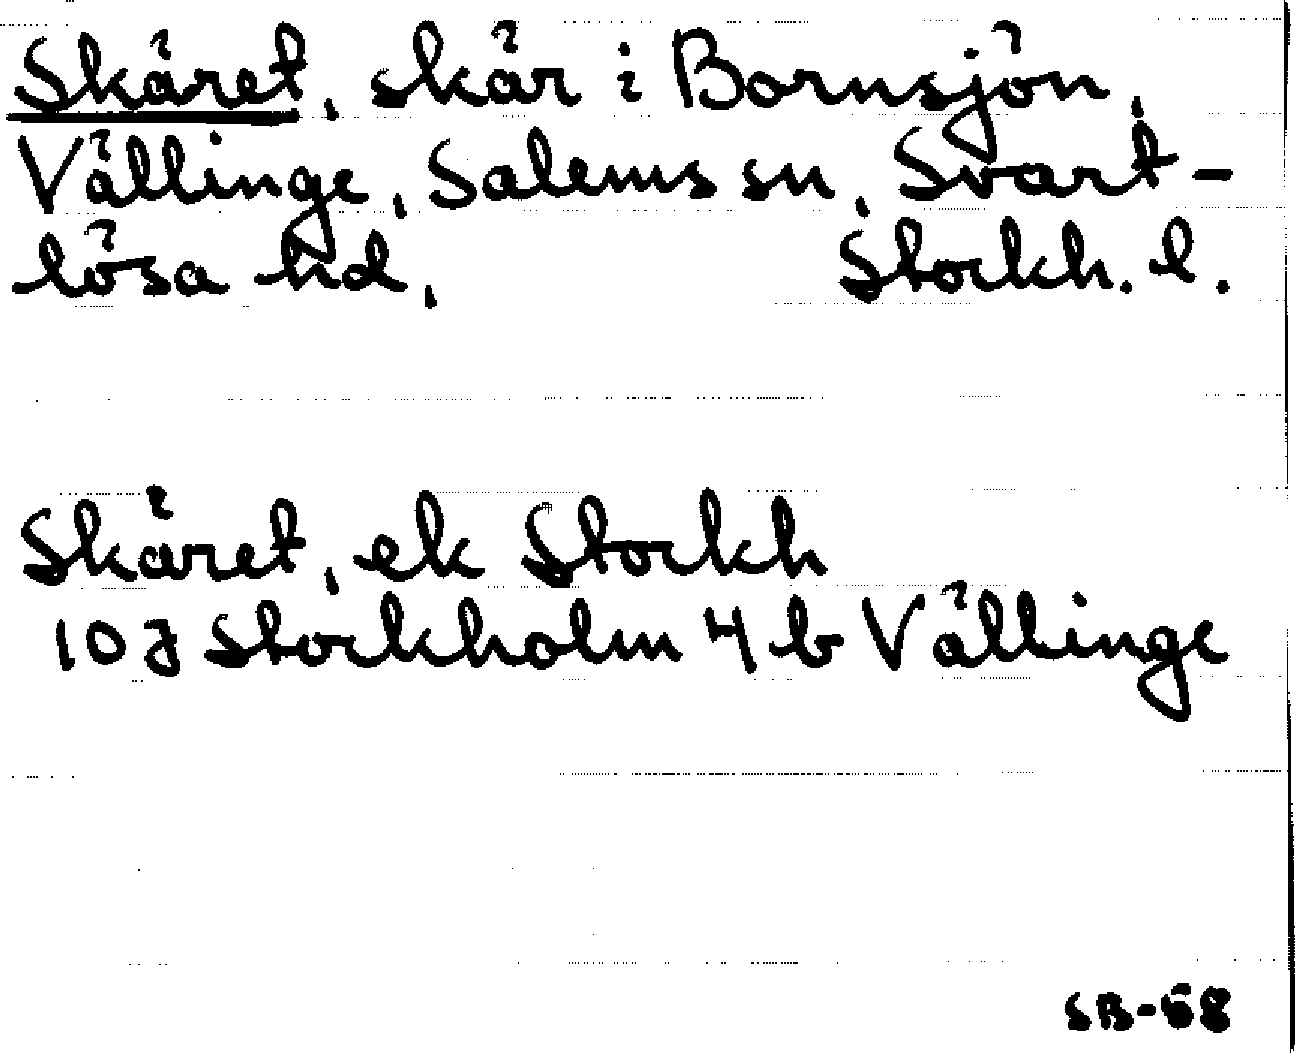 Skäret, skär i Bornsjön,
Vällinge, Salems sn, Svart-
lösa hd, Stockh. l.
Skäret, ek Stockh
10J Stockholm 4 b Vällinge
SB-58